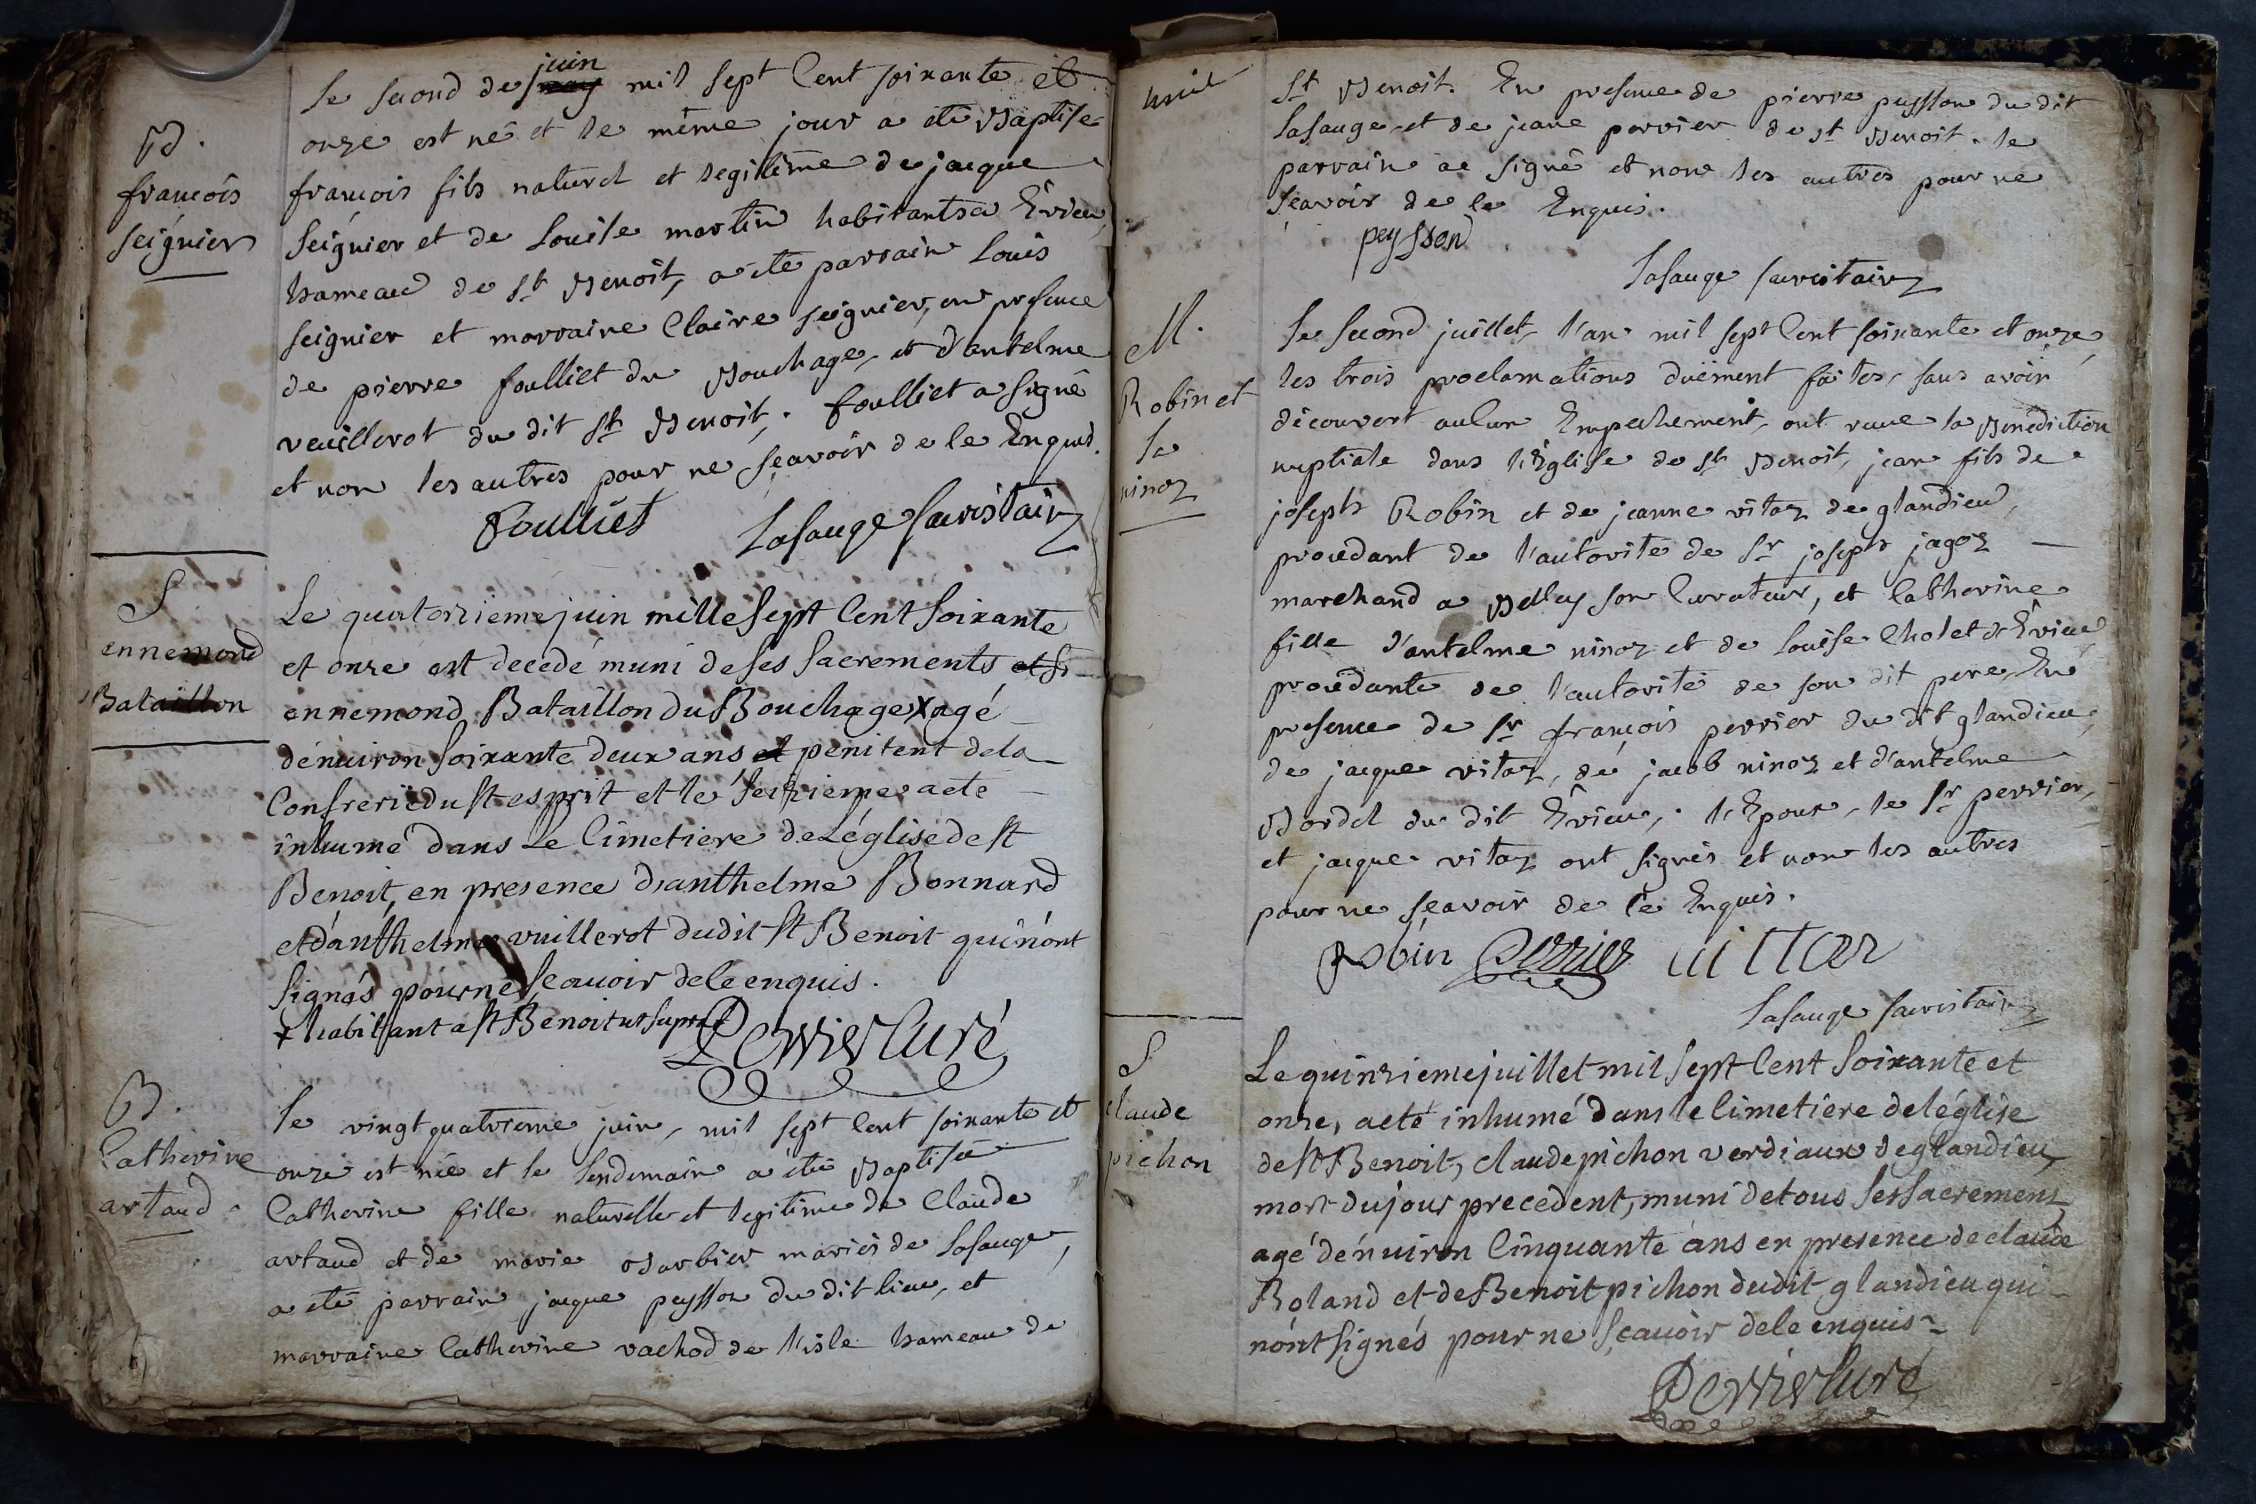 B.
françois
seignier
le second de juin may mil sept Cent soixante et
onze est né et le même jour a eté Baptisé
françois fils naturel et legitime de jacque
seignier et de Louise martin habitants a Evieu
hameau de st Benoit, a eté parrain Louis
seignier et marraine Claire seignier, en presence
de pierre foulliet du Bouchage, et d'antelme
veuillerot du dit st Benoit, foulliet a signé
et non les autres pour ne sçavoir de ce Enquis.
Foulliet
Lasauge sacristain
S
ennemond
Bataillon
Le quatorzieme juin mille sept Cent soixante
et onze est decedé muni de ses sacrements et st
ennemond Bataillon du Bouchage X agé
d'enuiron soixante deux ans et penitent de la
Confrerie du st esprit et le seizieme a eté
inhumé dans Le Cimetiere de L'église de st
Benoit, en presence d'anthelme Bonnard
et d'anthelme vuillerot dudit st Benoit qui n'ont
signés pour ne sçauoir de ce enquis.
x habitant a st Benoit ut supra
Perrier Curé
B.
Catherine
artaud
le vingt quatrieme juin, mil sept Cent soixante et
onze est née et le lendemain a eté Baptisée
Catherine fille naturelle et legitime de Claude
artaud et de marie Barbier mariés de Lasauge,
a eté parrain jacque peysson du dit lieu, et
marraine Catherine vachod de l'isle hameau de
st Benoit. En presence de pierre peysson du dit
Lasauge et de jeane perrier de st Benoit. le
parrain a signé et non les autres pour ne
sçavoir de ce Enquis.
peysson
Lasauge sacristain
M.
Robin et
la
ninoz
Le second juillet, l'an mil sept Cent soixante et onze,
les trois proclamations duëment faites, sans avoir
découvert aucun Empechement, ont recue la Benediction
nuptiale dans l'Eglise de st Benoit, jean fils de
joseph Robin et de jeanne vitoz de glandieu,
procedant de l'autorité de Sr joseph jagoz
marchand a Belley son Curateur, et Catherine
fille d'antelme ninoz et de Louise Cholet d'Evieu
procedante de l'autorité de son dit pere, En
presence de Sr françois perrier du dit glandieu,
de jacque vitoz, de jacob ninoz et d'antelme
Bordel du dit Evieu, l'Epoux, le Sr perrier,
et jacque vitoz ont signés et non les autres
pour ne sçavoir de ce Enquis.
Robin Perrier uittoz
Lasauge sacristain
S
claude
pichon
Le quinzieme juillet mil sept Cent soixante et
onze, a eté inhumé dans le Cimetiere de l'église
de st Benoit, claude pichon verdiaux de glandieu
mort du jour precedent, muni de tous ses sacremens
agé d'enuiron Cinquante ans en presence de claude
Roland et de Benoit pichon dudit glandieu qui
n'ont signés pour ne sçauoir de ce enquis
Perrier Curé